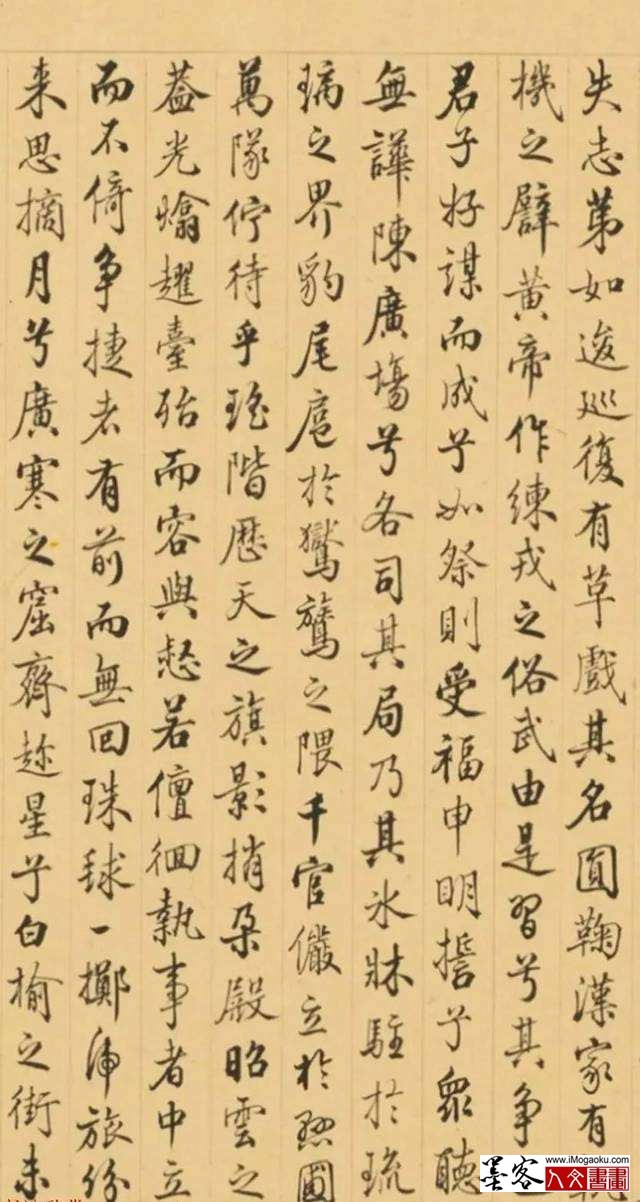 失志苐如逡巡復有草戲其名圓鞠漢家有
機之黄帝作練戎之俗武由是習兮其争
君子好謀而成兮如祭則受福申明誓兮衆聽
無譁陳廣場兮各司其局乃其冰牀駐於琉
璃之界豹尾扈於鸑鷟之隈千官儼立於懸圃
萬隊佇待乎瑤階厯天之旗影捎朶殿昭雲之
葢光爚趯臺殆而容與若儃佪執事者中立
而不倚争捷者有前而無回珠毬一擲虎旅紛
来思摘月兮廣寒之窟齊趂星兮白榆之街未
www.iMogaoku.com
墨客人文書畫